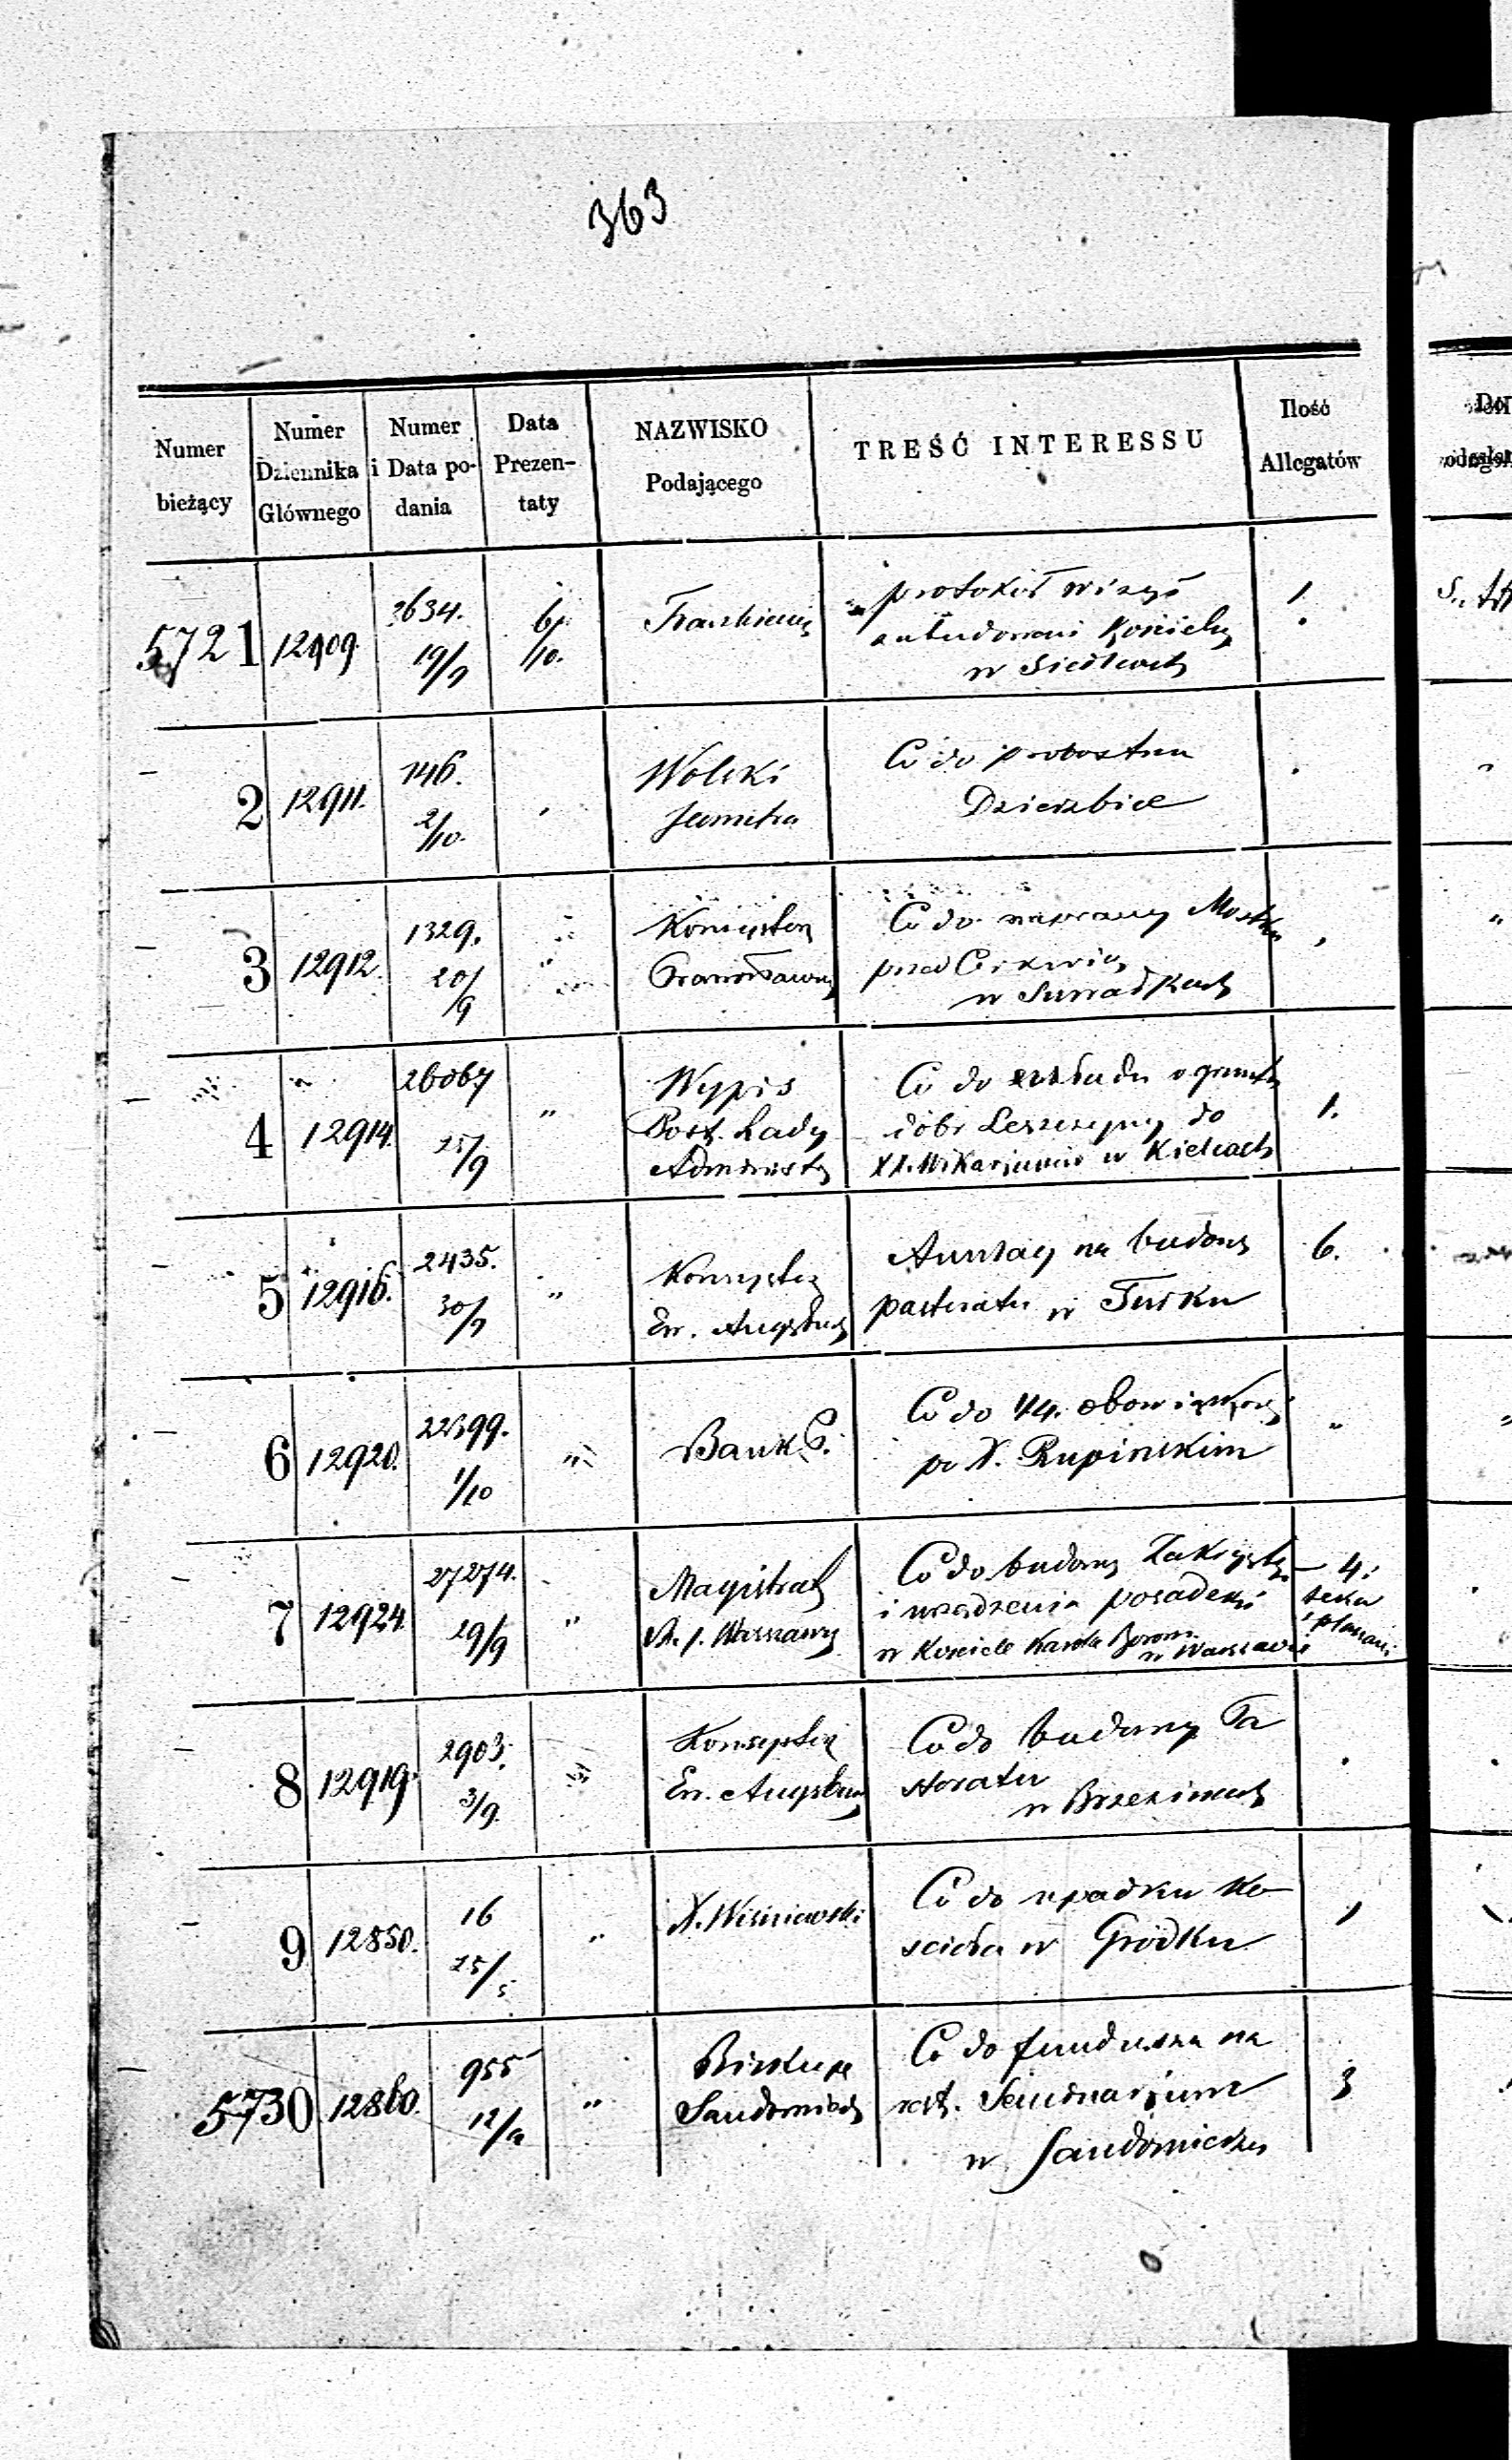 363
Numer bieżący
Numer Dziennika Głównego
Numer i Data podania
Data Prezentaty
NAZWISKO Podającego
TREŚĆ INTERESSU
Ilość Allegatów
5721 12909. 2634. 19/9 6/10.
protokół
Kościoła
w Siedlcach
1.
2 12911. 746. 2/10. "
Wolski
Co do probostwa
Dzierzbice
3 12912. 1329. 20/9 "
Konsystorz
Prawosławny
Co do naprawy Mostku
przed Cerkwią
w
4 12914. 26067 25/9 "
Wypis
Post. Rady
Administr.
Co do
dóbr Leszczyny do
XX. Wikarjuszów w Kielcach
1.
5 12916. 2435. 30/9 "
Konsystorz
Ew. Augsburg
Anszlag na budowę
pastoratu w Turku
6.
6 12920. 22399. 1/10 "
Bank P.
Co do
po X. Rupińskim
"
7 12924. 27274. 29/9 "
Magistrat
M. s. Warszawy
Co do budowy Zakrystyi
i urządzenia posadzki
w Kościele Karola Borom.
w Warszawie
4.
teka
8 12919. 2903. 3/9. "
Konsystorz
Ew. Augsburg
Co do budowy Pa
storatu
w Brzezinach
9 12850. 16 25/5 "
X. Wiśniewski
Co do upadku Ko-
ścioła w Gródku
5730 12860. 955 12/9 "
Biskup
Sandomierski
Co do funduszu na
Seminarjum
w Sandomierzu
3